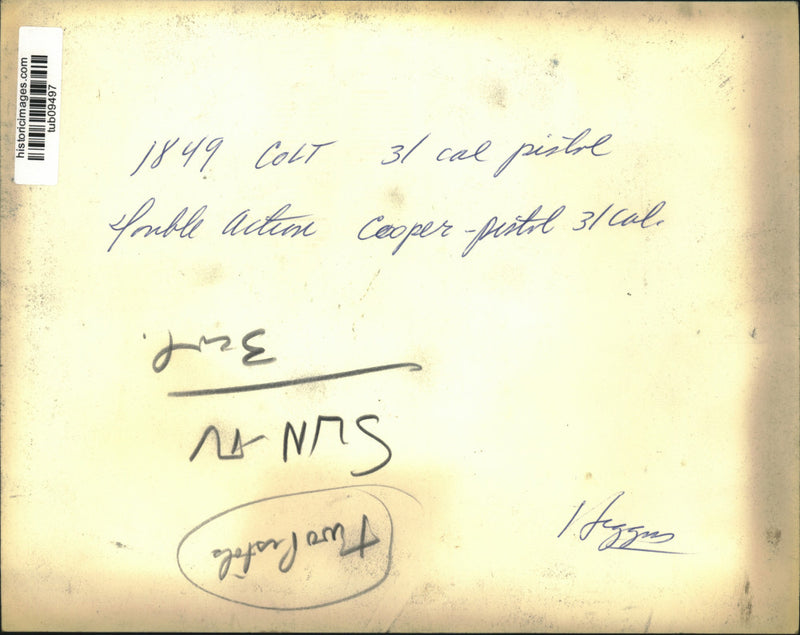 historicimages.com
tub09497
1849 COLT 31 cal pistol
Double Action Cooper - pistol 31 cal.
two Pistols
SUN AV
3 col.